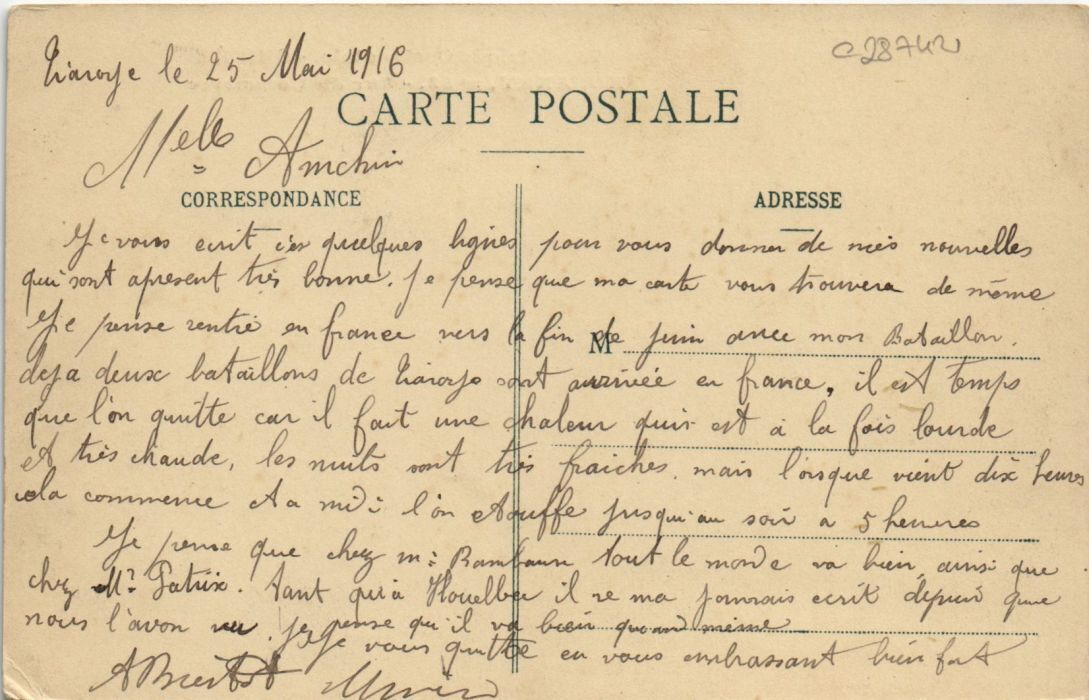 Tiaroye le 25 Mai 1916
C28742
CARTE POSTALE
Melle Amchin
CORRESPONDANCE
ADRESSE
Je vous ecrit ces quelques lignes pour vous donner de mes nouvelles
qui sont apresent très bonne. Je pense que ma carte vous trouvera de même
Je pense rentré en france vers la fin de juin avec mon Bataillon.
M
deja deux bataillons de Tiaroye sont arrivée en france, il est temps
que l'on quitte car il fait une chaleur qui est à la fois lourde
et très chaude, les nuits sont très fraiches, mais l'orsque vient dix heures
cela commence et a midi l'on étouffe jusqu'au soir a 5 heures
Je pense que chez m: tout le monde va bien, ainsi que
chez Mr Patrix. tant qu'à il ne ma jamais ecrit depuis que
nous l'avon vu. je pense qu'il va bien quand même
Je vous quitte en vous embrassant bien fort